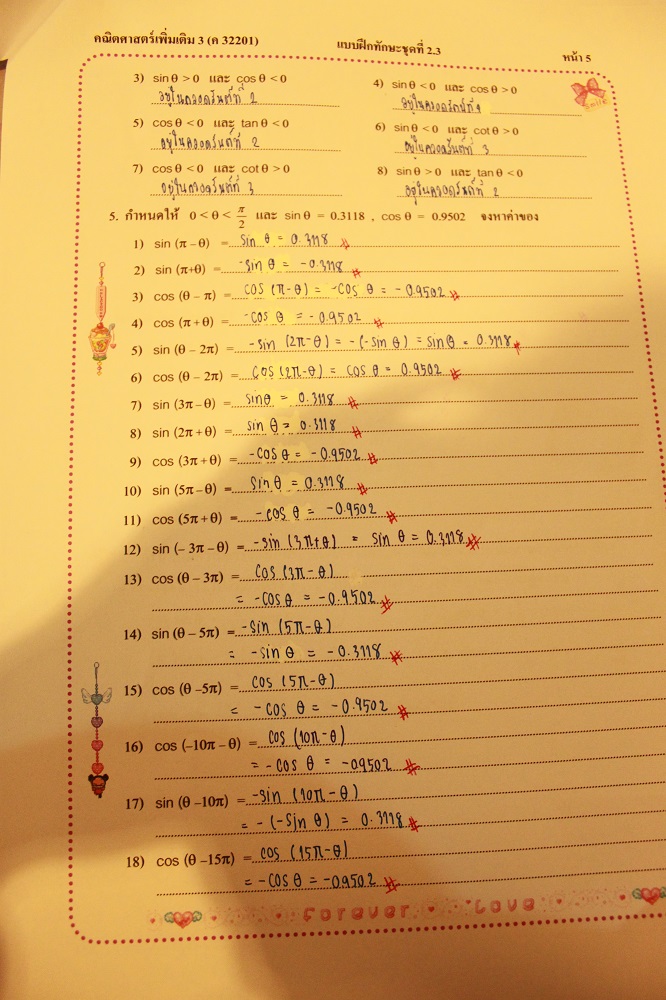 คณิตศาสตร์เพิ่มเติม 3 (ค 32201) แบบฝึกทักษะชุดที่ 2.3 หน้า 5
3) sin θ > 0 และ cos θ < 0 4) sin θ < 0 และ cos θ > 0
อยู่ในควอดรันต์ที่ 2 อยู่ในควอดรันต์ที่ 4
5) cos θ < 0 และ tan θ < 0 6) sin θ < 0 และ cot θ > 0
อยู่ในควอดรันต์ที่ 2 อยู่ในควอดรันต์ที่ 3
7) cos θ < 0 และ cot θ > 0 8) sin θ > 0 และ tan θ < 0
อยู่ในควอดรันต์ที่ 3 อยู่ในควอดรันต์ที่ 2
5. กำหนดให้ 0 < θ < π/2 และ sin θ = 0.3118 , cos θ = 0.9502 จงหาค่าของ
1) sin (π – θ) = sin θ = 0.3118 #
2) sin (π+θ) = -sin θ = -0.3118 #
3) cos (θ – π) = cos (π-θ) = -cos θ = -0.9502 #
4) cos (π + θ) = -cos θ = -0.9502 #
5) sin (θ – 2π) = -sin (2π-θ) = -(-sin θ) = sin θ = 0.3118 #
6) cos (θ – 2π) = cos (2π-θ) = cos θ = 0.9502 #
7) sin (3π – θ) = sin θ = 0.3118 #
8) sin (2π + θ) = sin θ = 0.3118 #
9) cos (3π + θ) = -cos θ = -0.9502 #
10) sin (5π – θ) = sin θ = 0.3118 #
11) cos (5π + θ) = -cos θ = -0.9502 #
12) sin (– 3π – θ) = -sin (3π+θ) = sin θ = 0.3118 #
13) cos (θ – 3π) = cos (3π-θ)
= -cos θ = -0.9502 #
14) sin (θ – 5π) = -sin (5π-θ)
= -sin θ = -0.3118 #
15) cos (θ –5π) = cos (5π-θ)
= -cos θ = -0.9502 #
16) cos (–10π – θ) = cos (10π-θ)
= -cos θ = -0.9502 #
17) sin (θ –10π) = -sin (10π-θ)
= -(-sin θ) = 0.3118 #
18) cos (θ –15π) = cos (15π-θ)
= -cos θ = -0.9502 #
forever Love